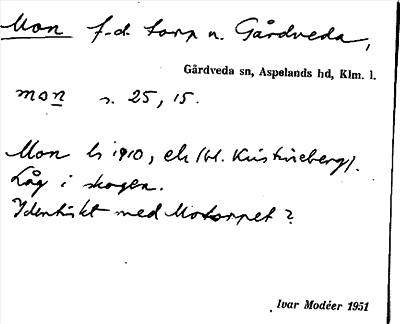 Mon f.d. torp u. Gårdveda,
Gårdveda sn, Aspelands hd, Klm. l.
mon s. 25, 15.
Mon hs 1910, ek (bl. Kristineberg).
Låg i skogen.
Identiskt med Motorpet?
Ivar Modéer 1951